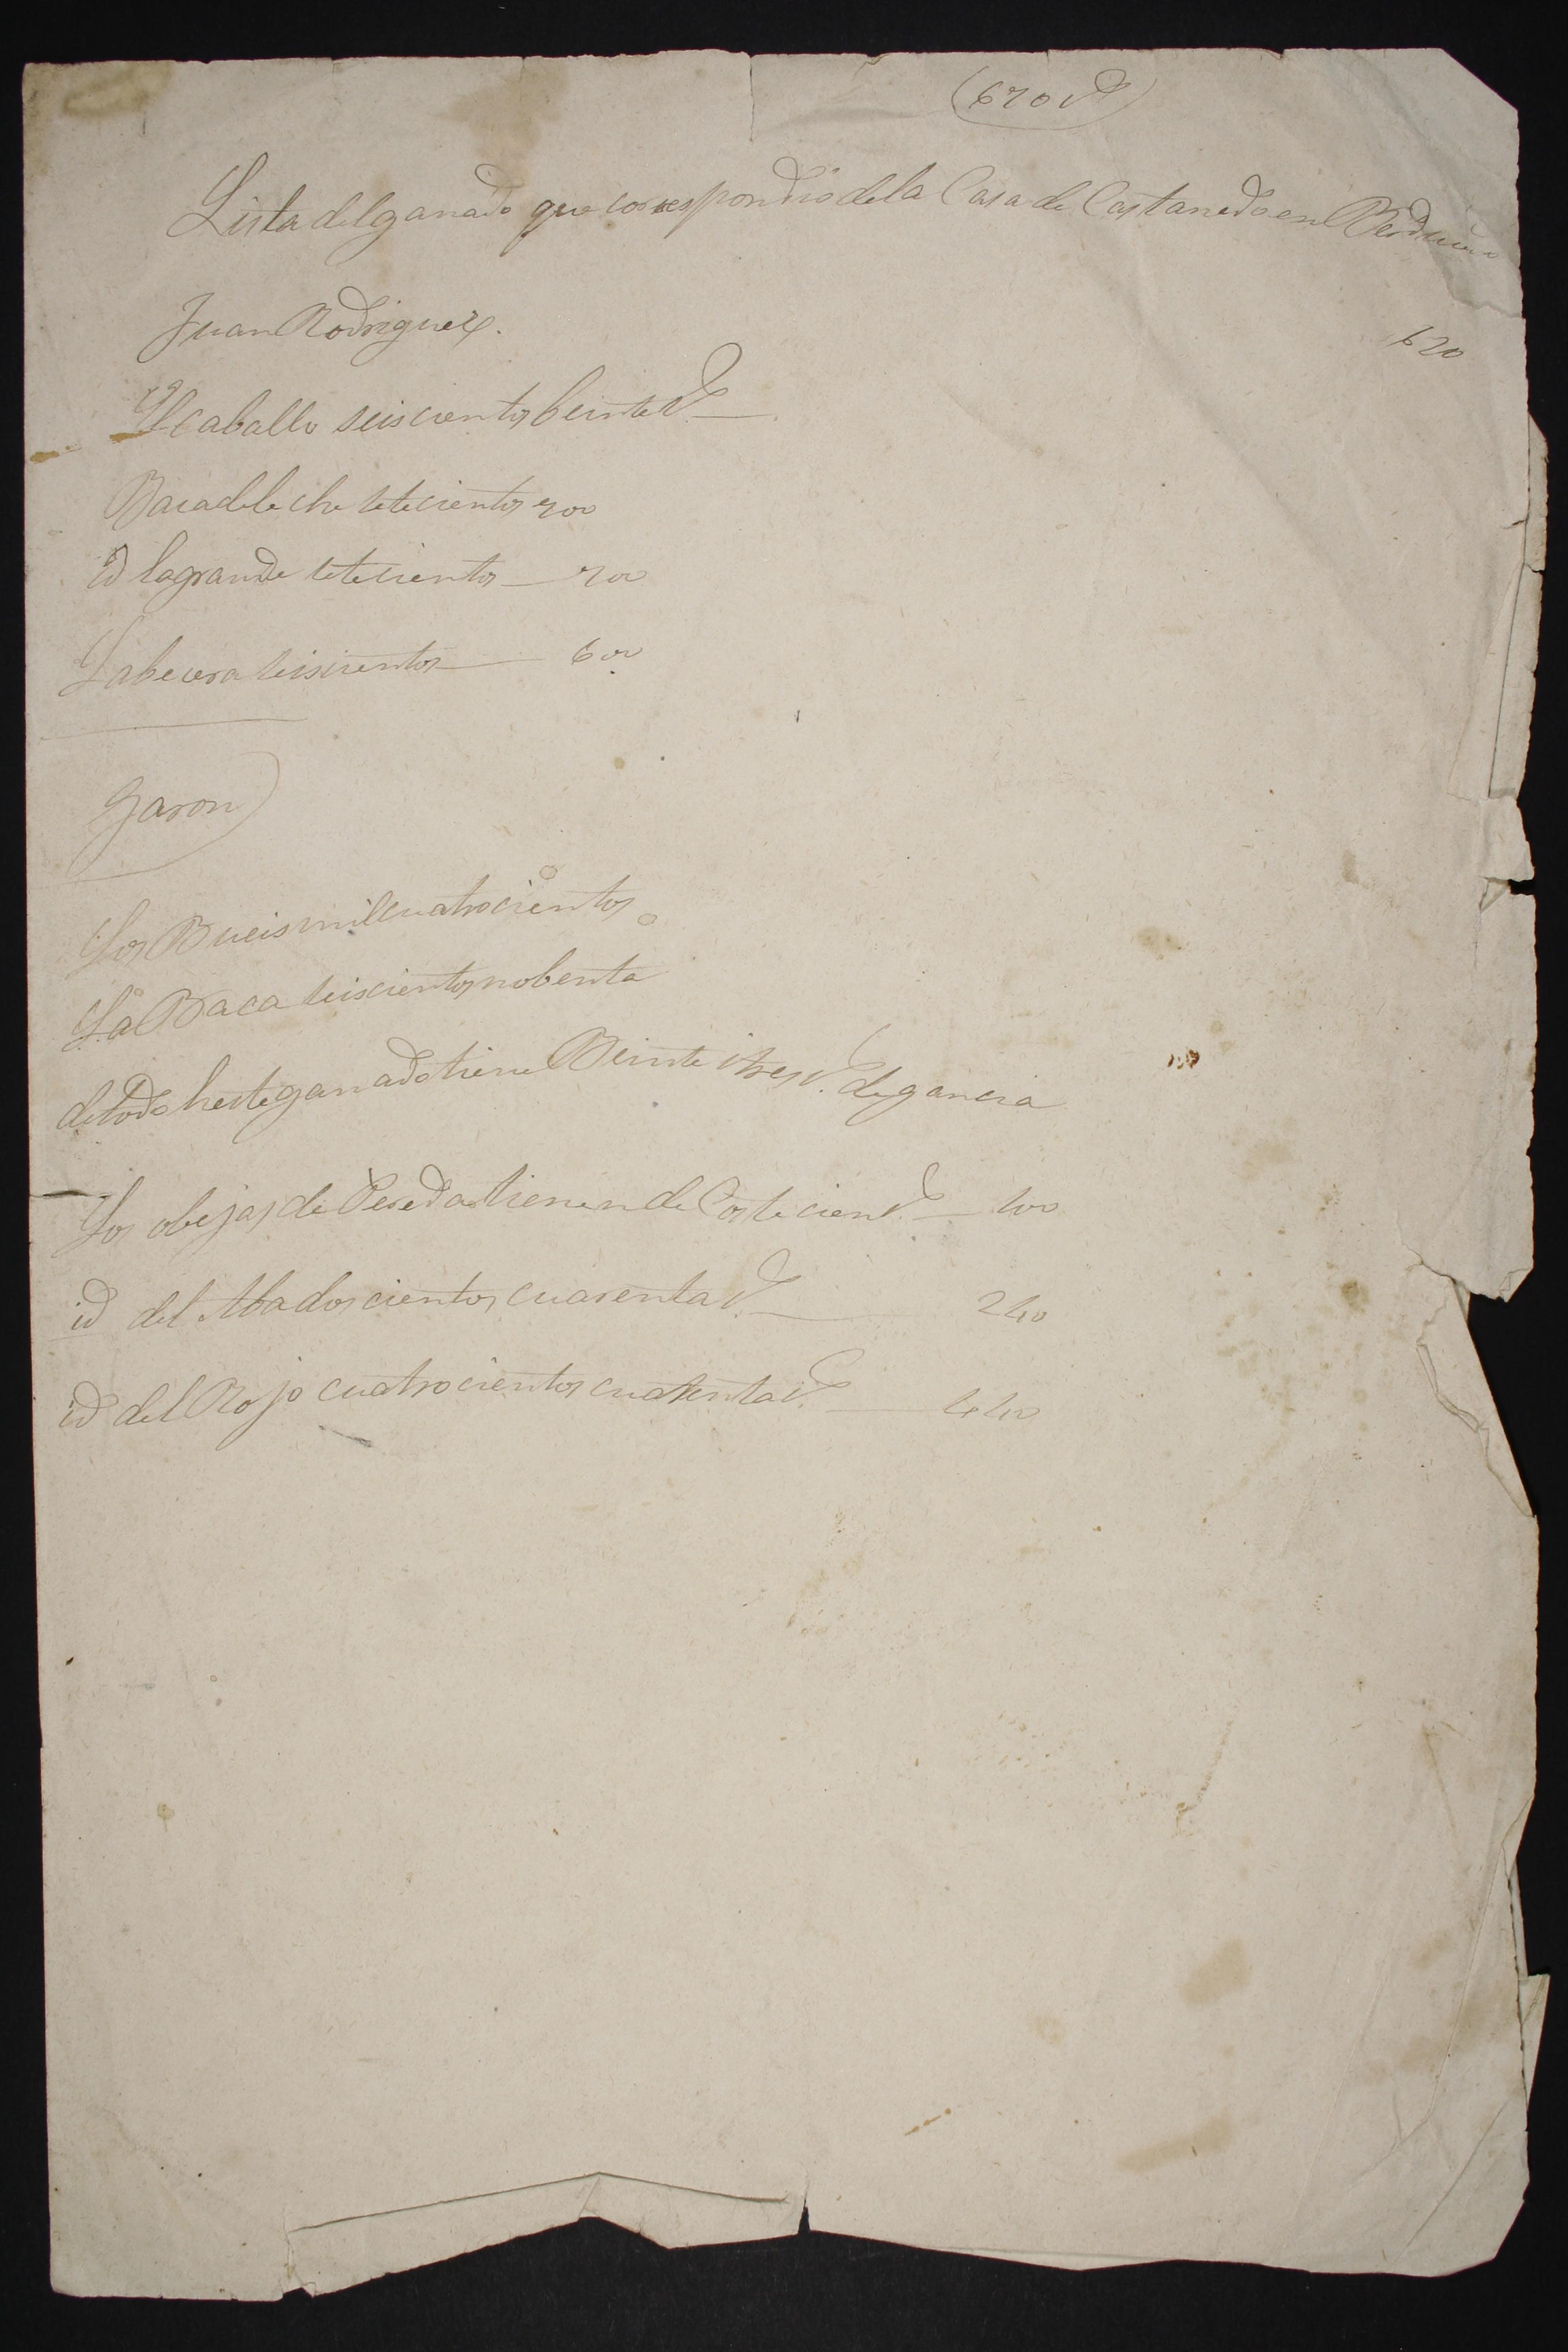 (670 rs)
Lista del ganado que correspondio de la Casa de Castanedo en
Juan Rodriguez.
620
El caballo seiscientos beinte rs
Baca de leche setecientos 700
id la grande setecientos 700
La becera seiscientos 600
Garon
Los Bueis mil cuatrocientos
La Baca seiscientos nobenta
de todo heste ganado tiene Beinte i tres rs. de gancia
Los obejas de Pereda tienen de Coste cien rs. 100
id del Aba doscientos cuarenta rs. 240
id del Rojo cuatrocientos cuarenta rs. 440